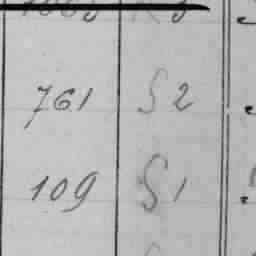 761 S 2
109 S 1